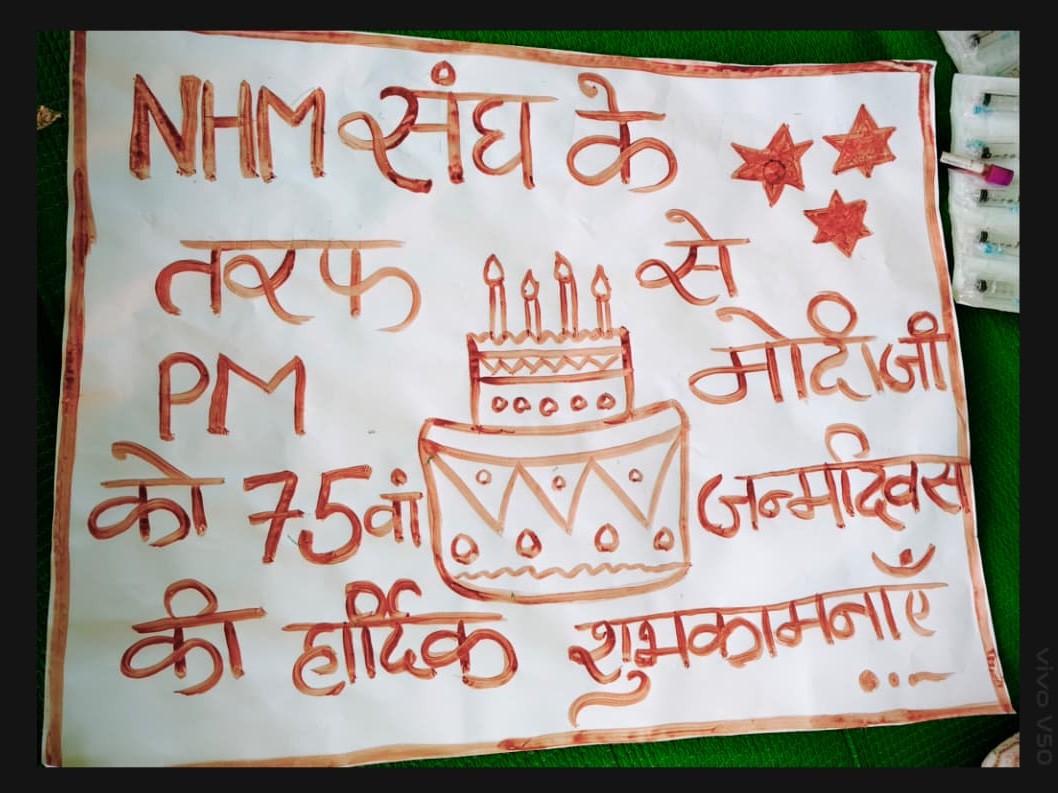 NHM संघ के
तरफ से
PM मोदीजी
को 75वां जन्मदिवस
की हार्दिक शुभकामनाएँ
...-
vivo V50